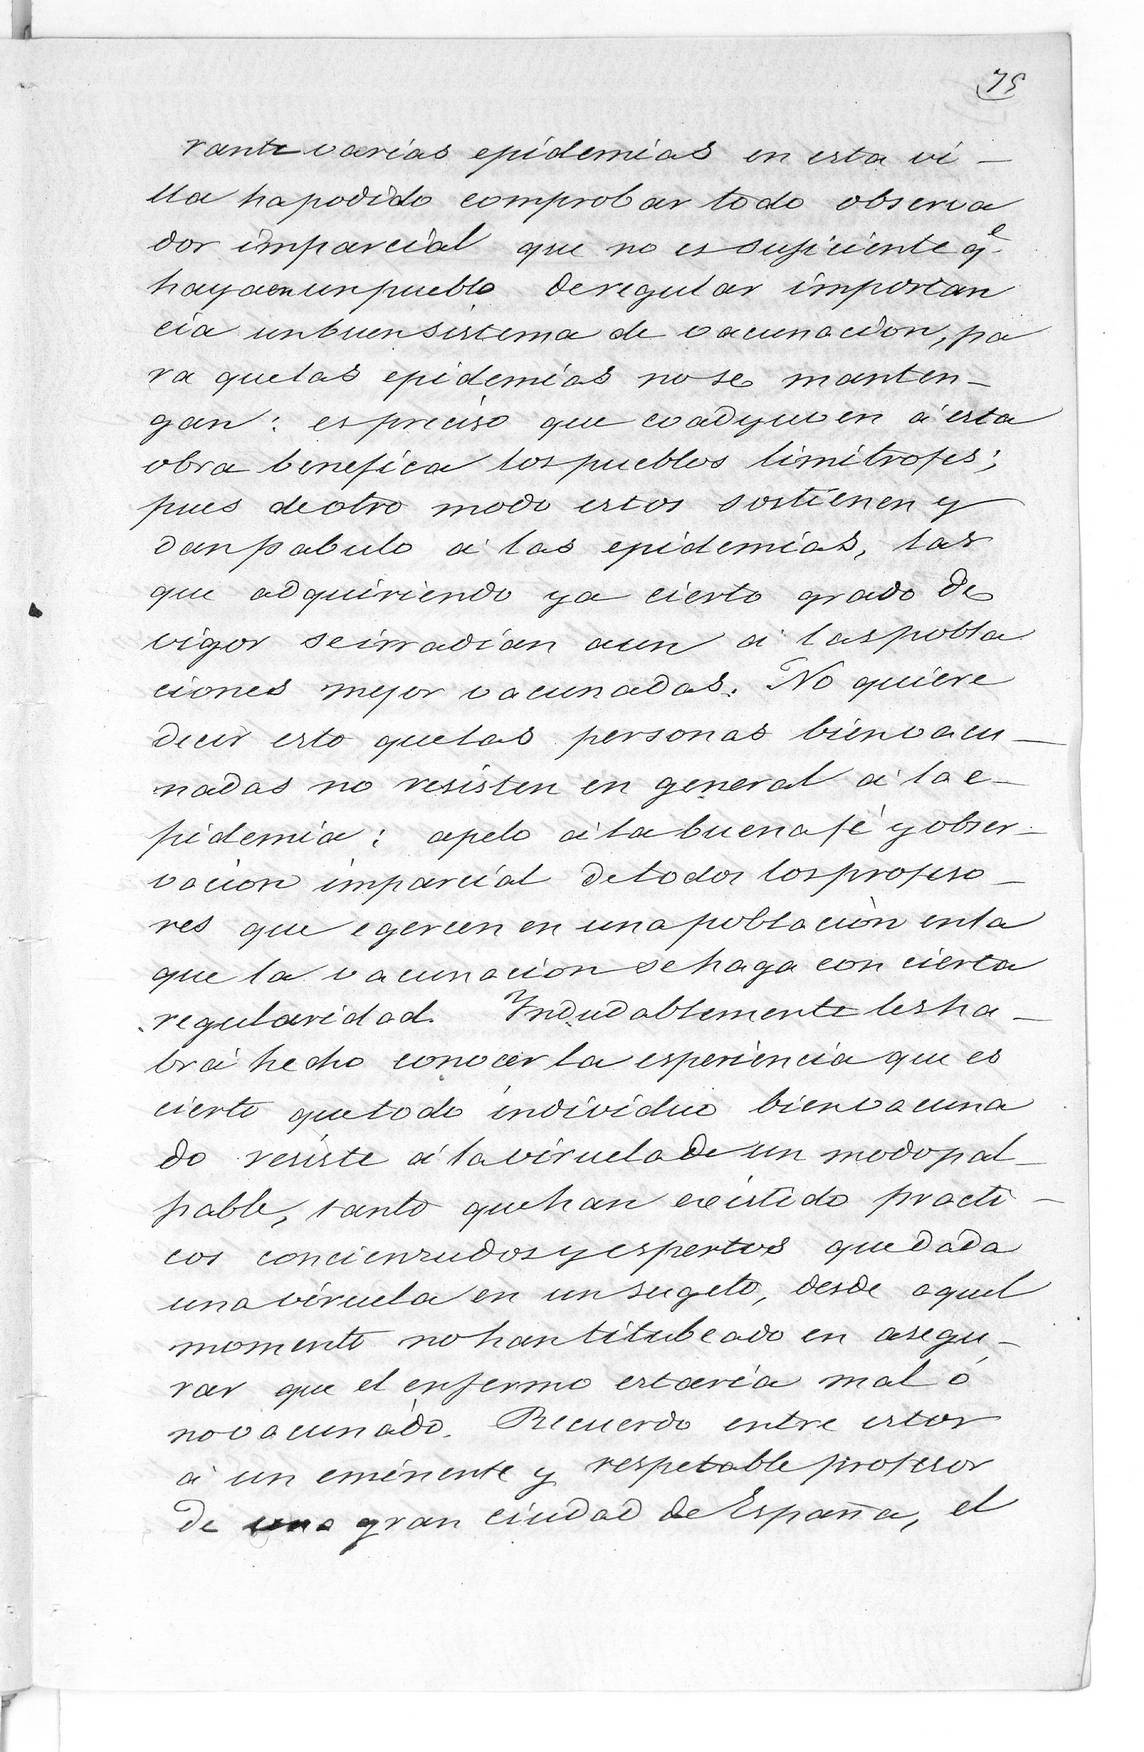 75
rante varias epidemias en esta vi-
lla ha podido comprobar todo observa
dor imparcial que no es suficiente q.e
haya en un pueblo de regular importan
cia un buen sistema de vacunacion, pa
ra que las epidemias no se manten-
gan: es preciso que coadyuven á esta
obra benefica los pueblos limitrofes;
pues de otro modo estos sostienen y
dan pabulo á las epidemias, las
que adquiriendo ya cierto grado de
vigor se irradian aun á las pobla
ciones mejor vacunadas. No quiere
decir esto que las personas bien vacu-
nadas no resisten en general á la e-
pidemia: apelo á la buena fé y obser-
vacion imparcial de todos los profeso-
res que egercen en una poblaciòn en la
que la vacunacion se haga con cierta
regularidad. Indudablemente les ha-
brá hecho conocer la esperiencia que es
cierto que todo individuo bien vacuna
do resiste á la viruela de un modo pal-
pable, tanto que han existido practi-
cos concienzudos y espertos que dada
una viruela en un sugeto, desde aquel
momento no han titubeado en asegu-
rar que el enfermo estaria mal ó
no vacunado. Recuerdo entre estos
á un eminente y respetable profesor
de una gran ciudad de España, el